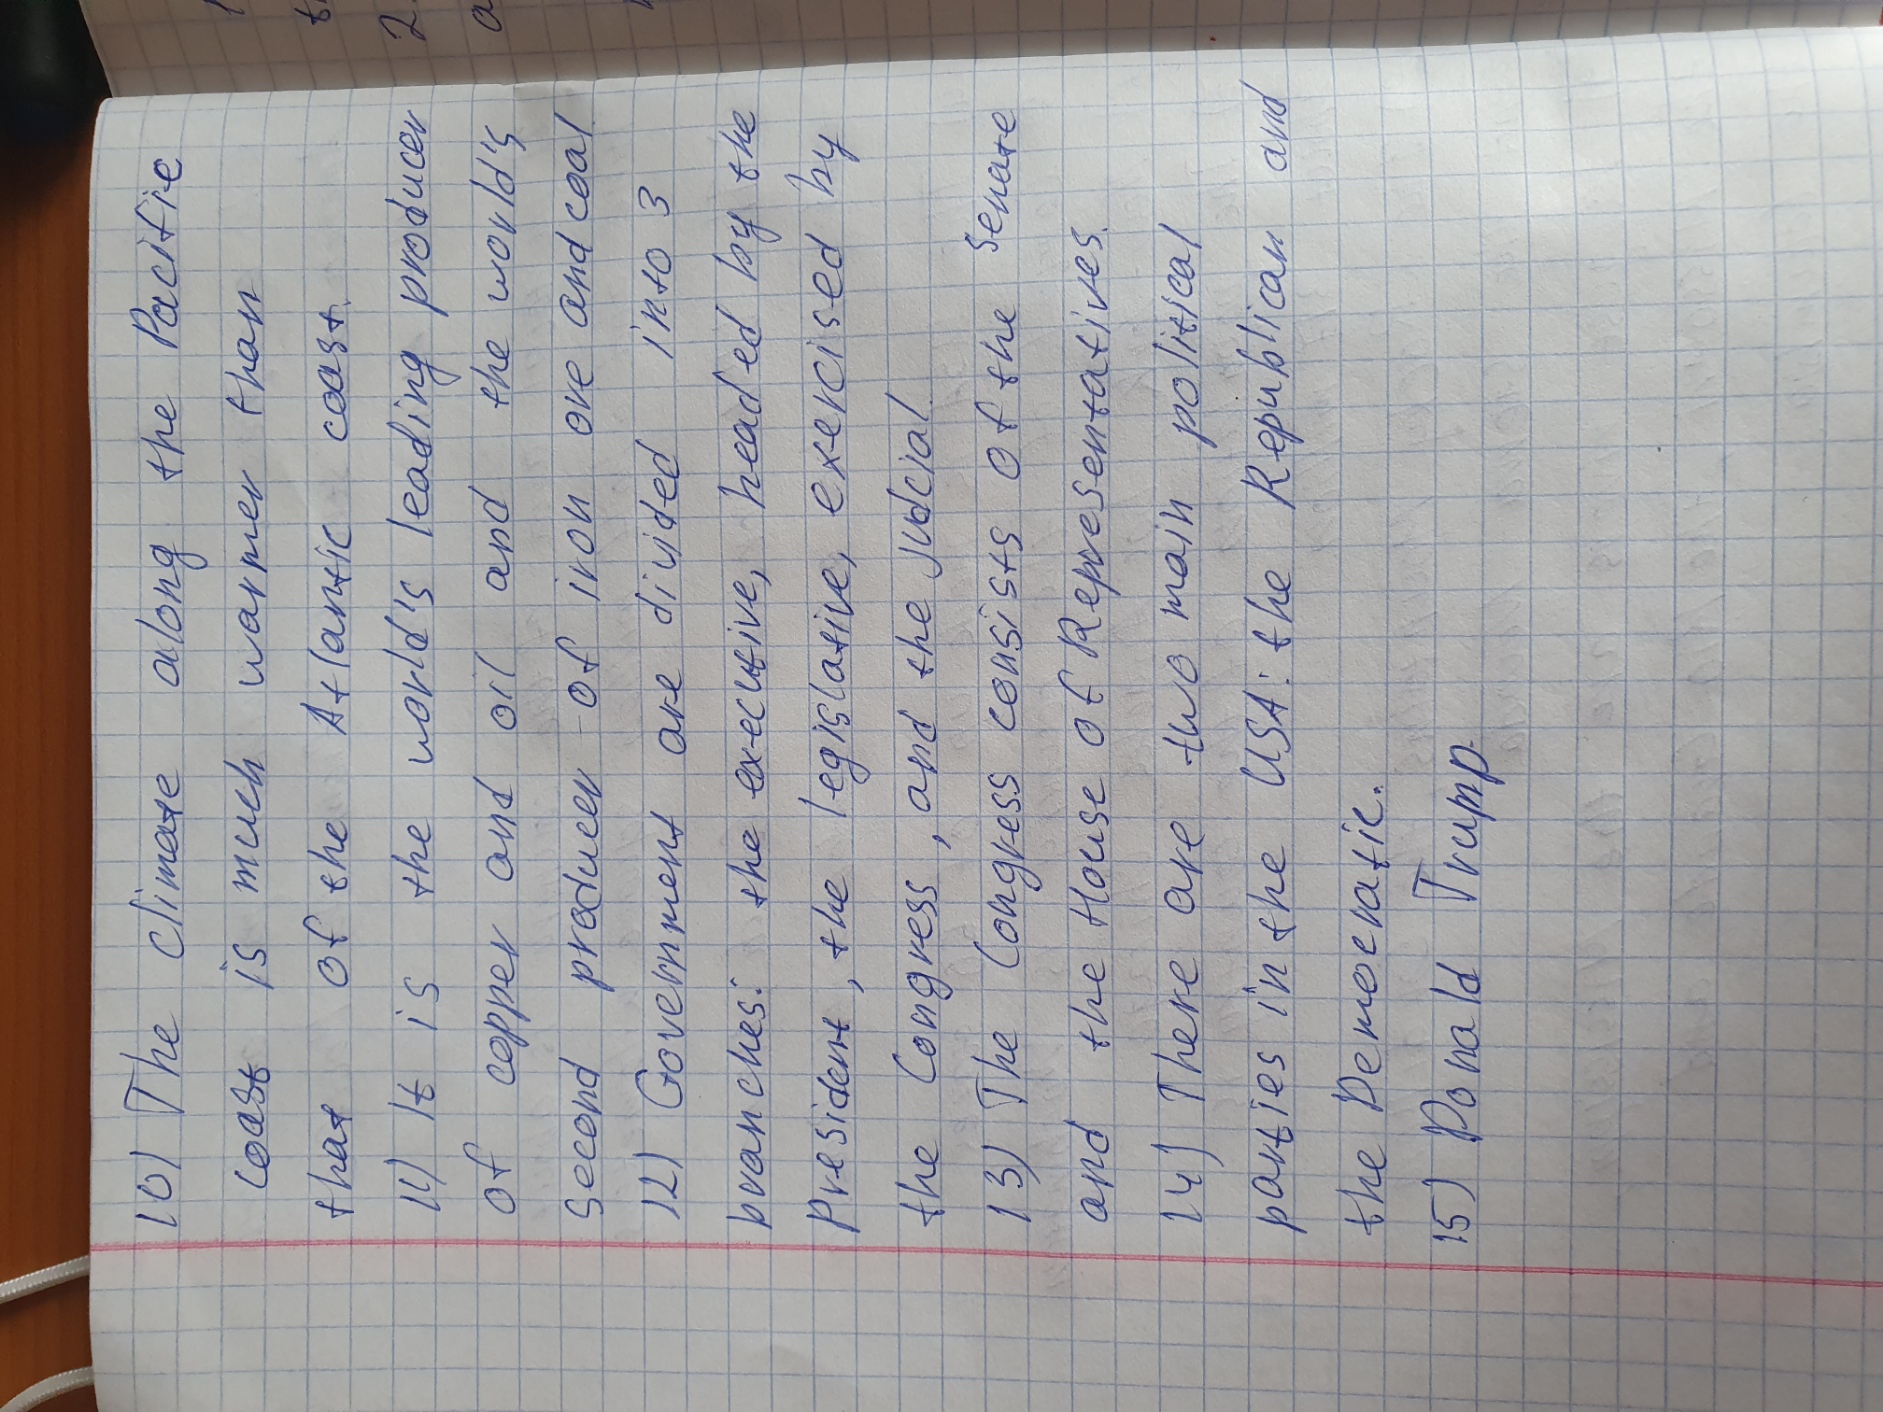 10) The climate along the Pacific
coast is much warmer than
that of the Atlantic coast.
11) It is the world's leading producer
of copper and oil and the world's
second producer of iron ore and coal.
12) Government are divided into 3
branches: the executive, headed by the
President, the legislative, exercised by
the Congress, and the judcial.
13) The Congress consists of the Senate
and the House of Representatives.
14) There are two main political
parties in the USA: the Republican and
the Democratic.
15) Donald Trump.